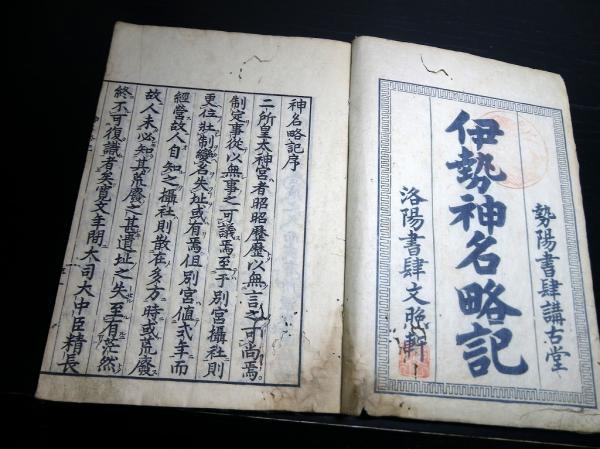 勢陽書肆講古堂
伊勢神名略記
洛陽書肆文煕軒
神名略記序
二所皇太神宮者昭昭歴歴以無言之可尚焉
制定事從以無事之可議焉至于別宮攝社則
更位壮制變名失址或有焉但別宮値式年而
經營故人自知之攝社則散在多方時或荒廢
故人未必知其荒廢之甚遺址之失至有茫然
終不可復識者矣寛文年間大司大中臣精長